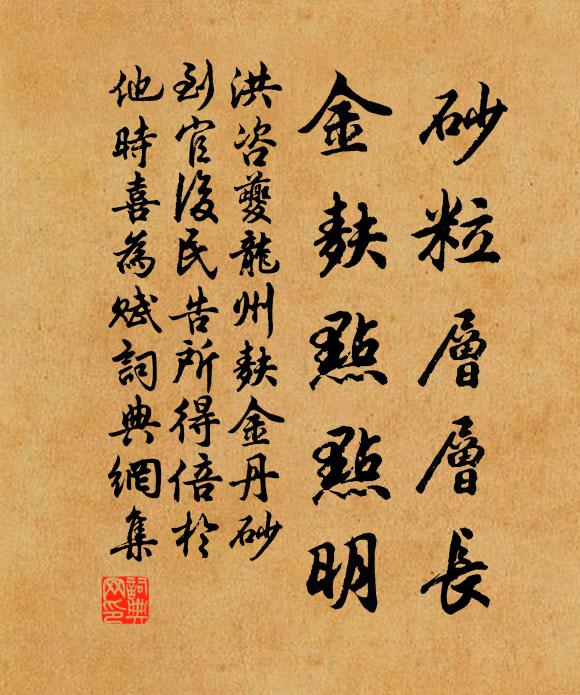 砂粒層層長
金麩點點明
洪咨夔龍州麩金丹砂
到官後民告所得倍於
他時喜為賦詞典網集
詞典網印